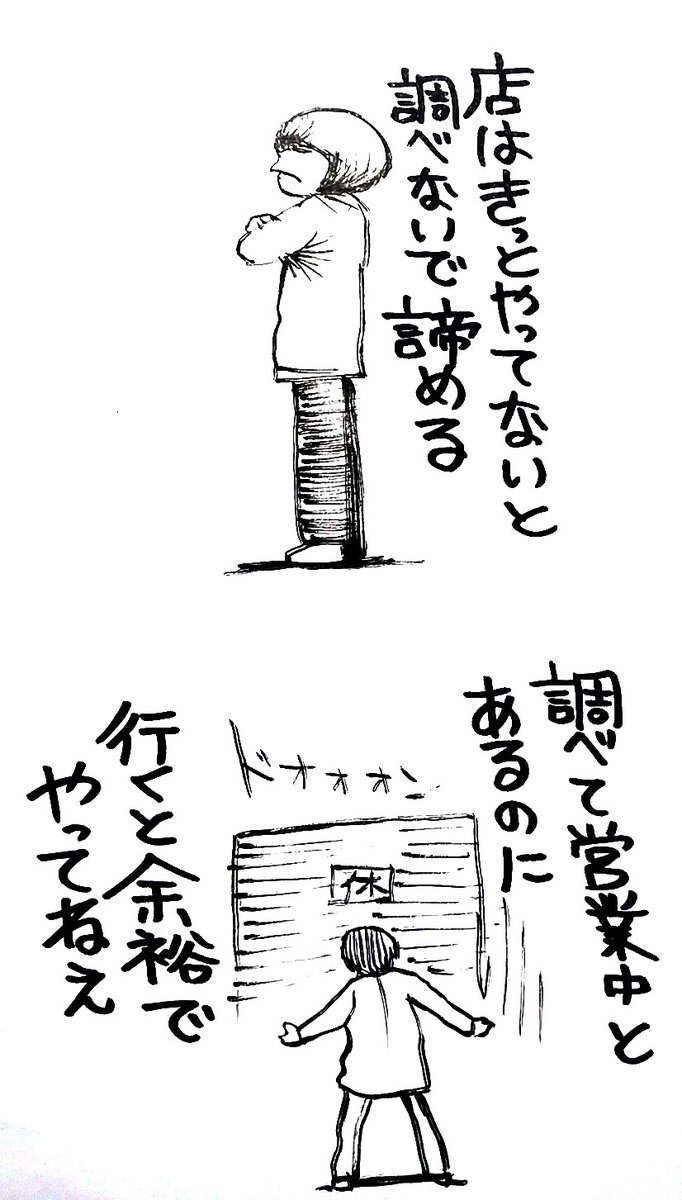 店はきっとやってないと
調べないで諦める
調べて営業中と
あるのに
ドォォォォン
休
行くと余裕で
やってねえ